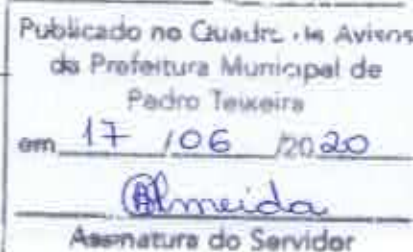 Publicado no Quadro de Avisos
da Prefeitura Municipal de
Pedro Teixeira
em 17 / 06 /2020
Almeida
Assinatura do Servidor